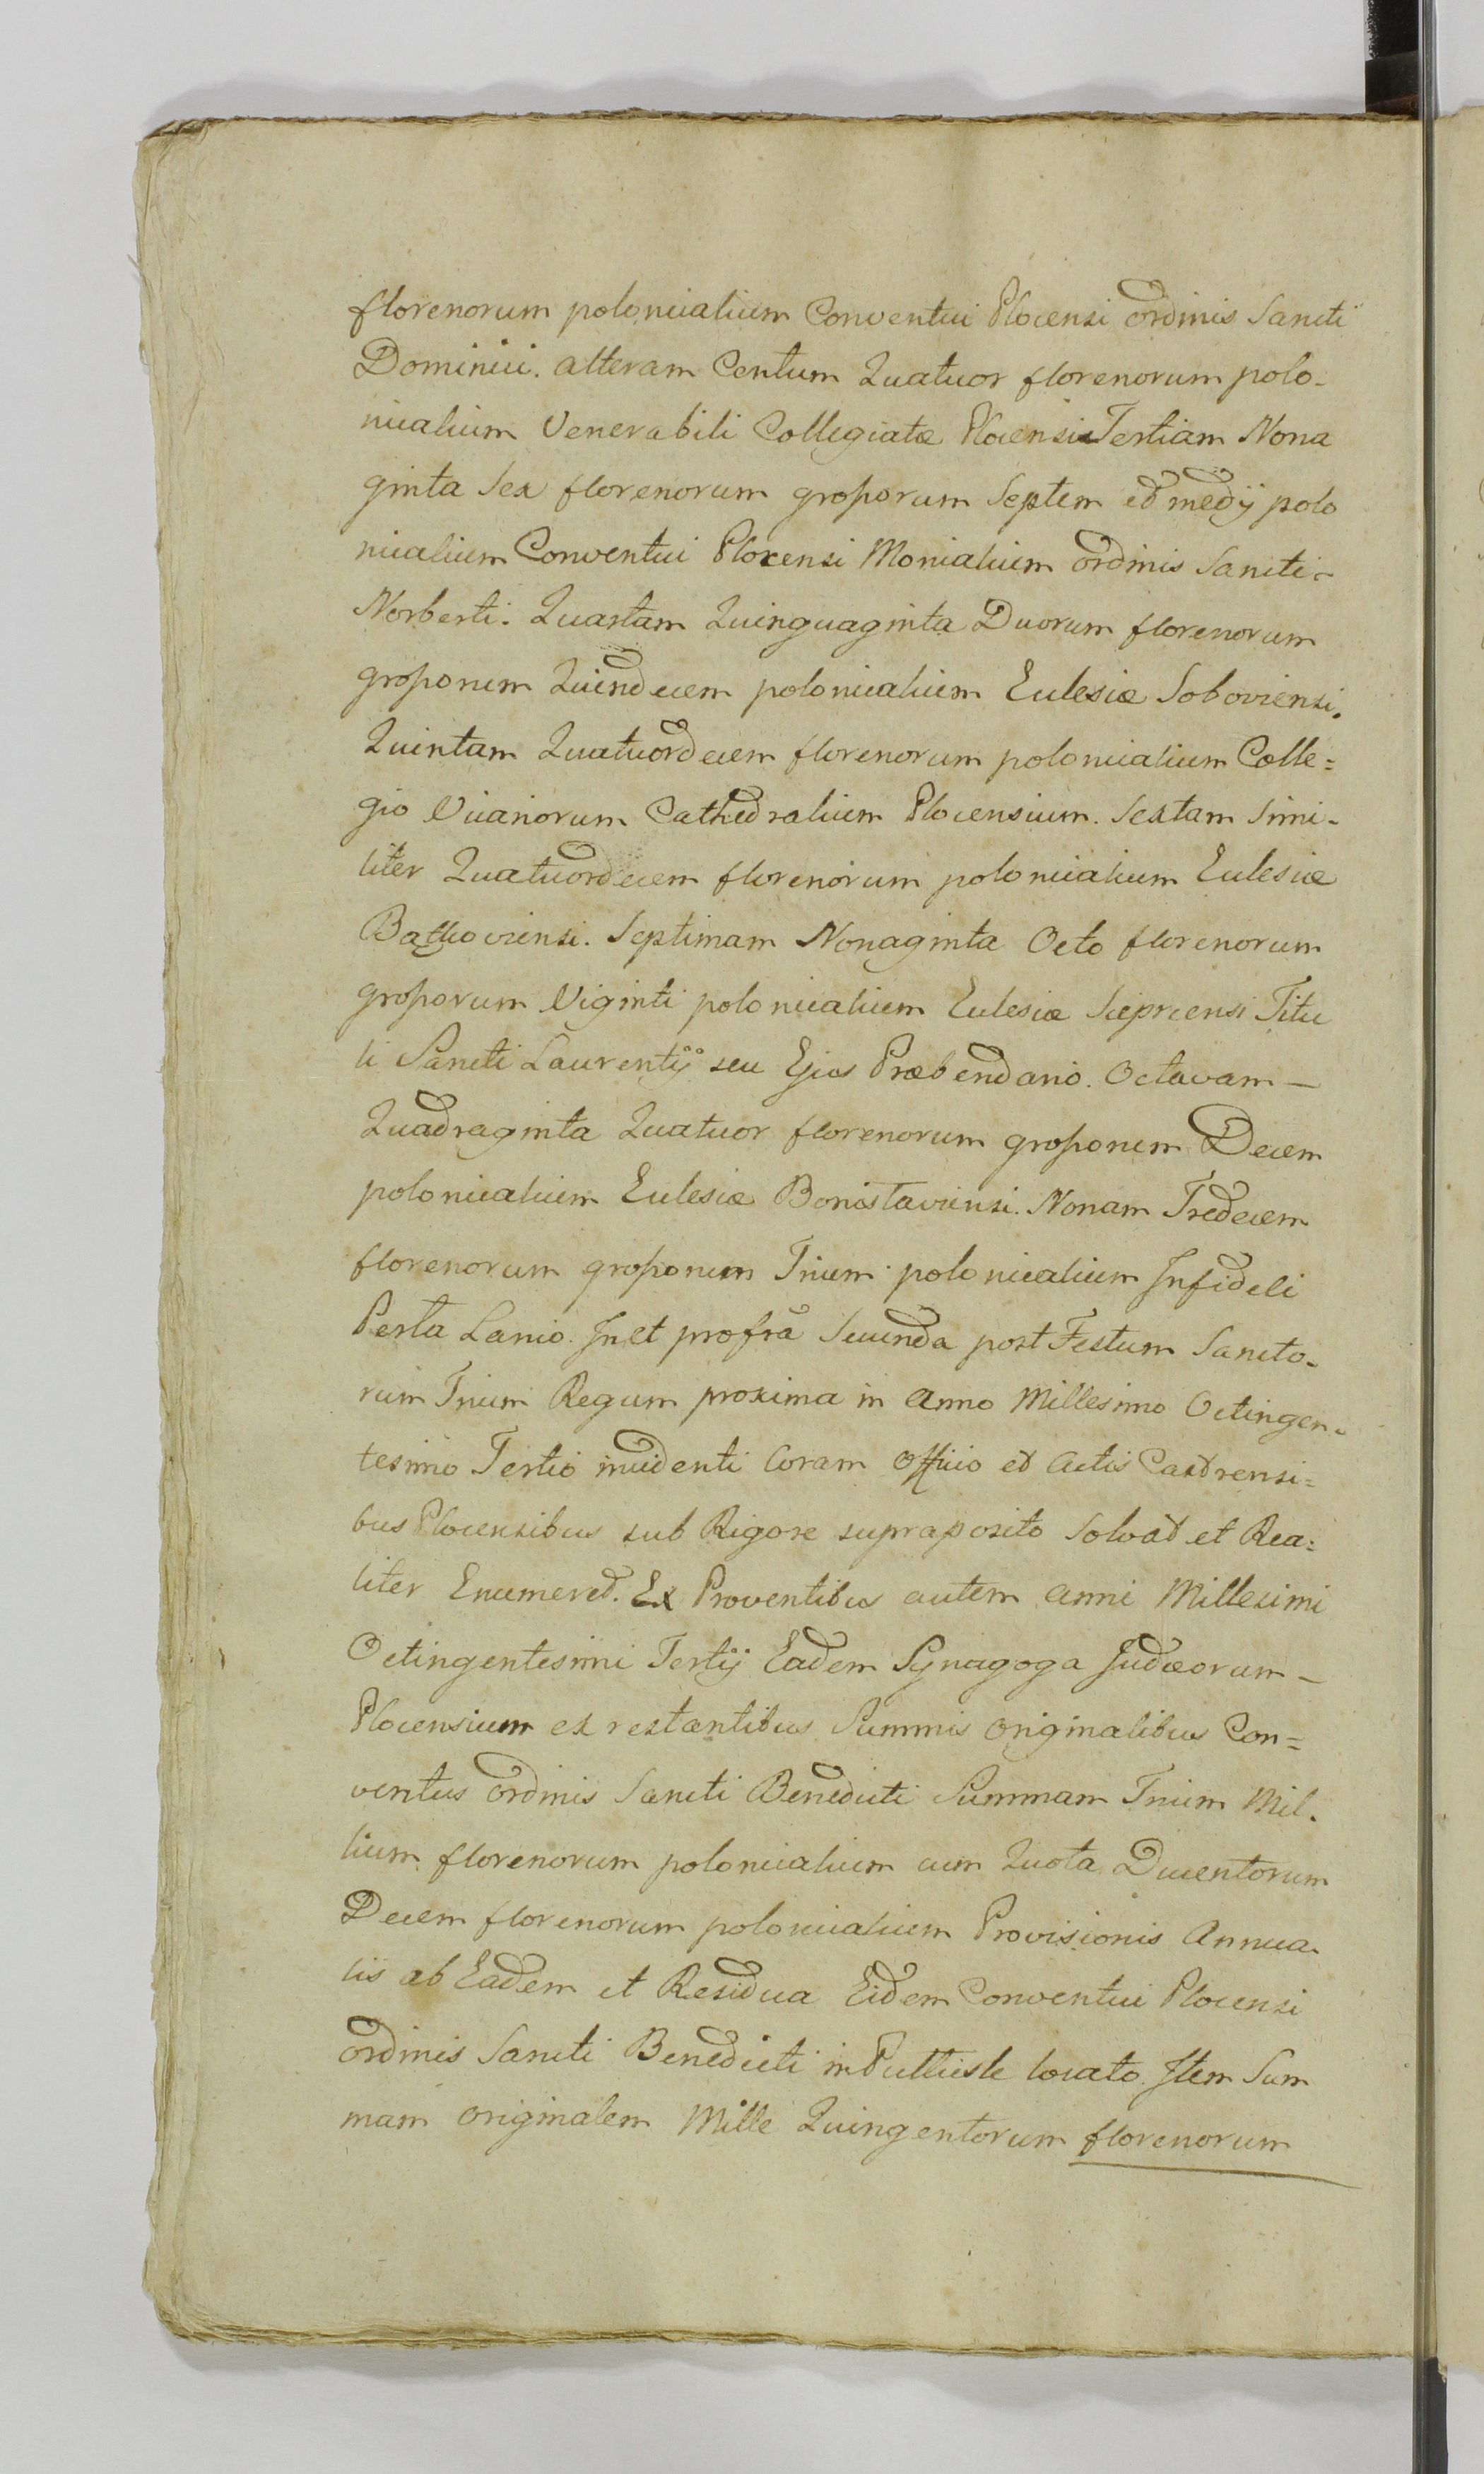 florenorum polonicalium Conventui Plocensi ordinis Sancti
Dominici. alteram Centum Quatuor florenorum polo-
nicalium Venerabili Collegiatæ Plocensi Tertiam Nona
ginta Sex florenorum grossorum Septem et medÿ polo
nicalium Conventui Plocensi Monialium ordinis Sancti-
Norberti. Quartam Quinquaginta Duorum florenorum
grossorum Quindecem polonicalium Eclesiæ Soboviensi.
Quintam Quatuordecem florenorum polonicalium Colle=
gio Vicariorum Cathedralium Plocensium. Sextam Simi-
liter Quatuordecem florenorum polonicalium Eclesiæ
Septimam Nonaginta Octo florenorum
grossorum Viginti polonicalium Eclesiæ Sieprcensi Titu
li Sancti Laurentÿ seu Ejus Præbendario. Octavam —
Quadraginta Quatuor florenorum grossorum Decem
polonicalium Eclesiæ Bonislaviensi. Nonam Tredecem
florenorum grossorum Trium polonicalium Infideli
Perla Lanio. In et pro fr̃a Secunda post Festum Sancto-
rum Trium Regum proxima in anno Millesimo Octingen-
tesimo Tertio incidenti Coram Officio et Actis Castrensi=
bus Plocensibus sub Rigore supraposito Solvat et Rea=
liter Enumeret. Ex Proventibus autem anni Millesimi
Octingentesimi Tertÿ Eadem Synagoga Judæorum —
Plocensium ex restantibus Summis originalibus Con=
ventus ordinis Sancti Benedicti Summam Trium Mil-
lium florenorum polonicalium cum Quota Ducentorum
Decem florenorum polonicalium Provisionis Annua
lis ab Eadem et Residua Eidem Conventui Plocensi
ordinis Sancti Benedicti in locato. Item Sum
mam originalem Mille Quingentorum florenorum